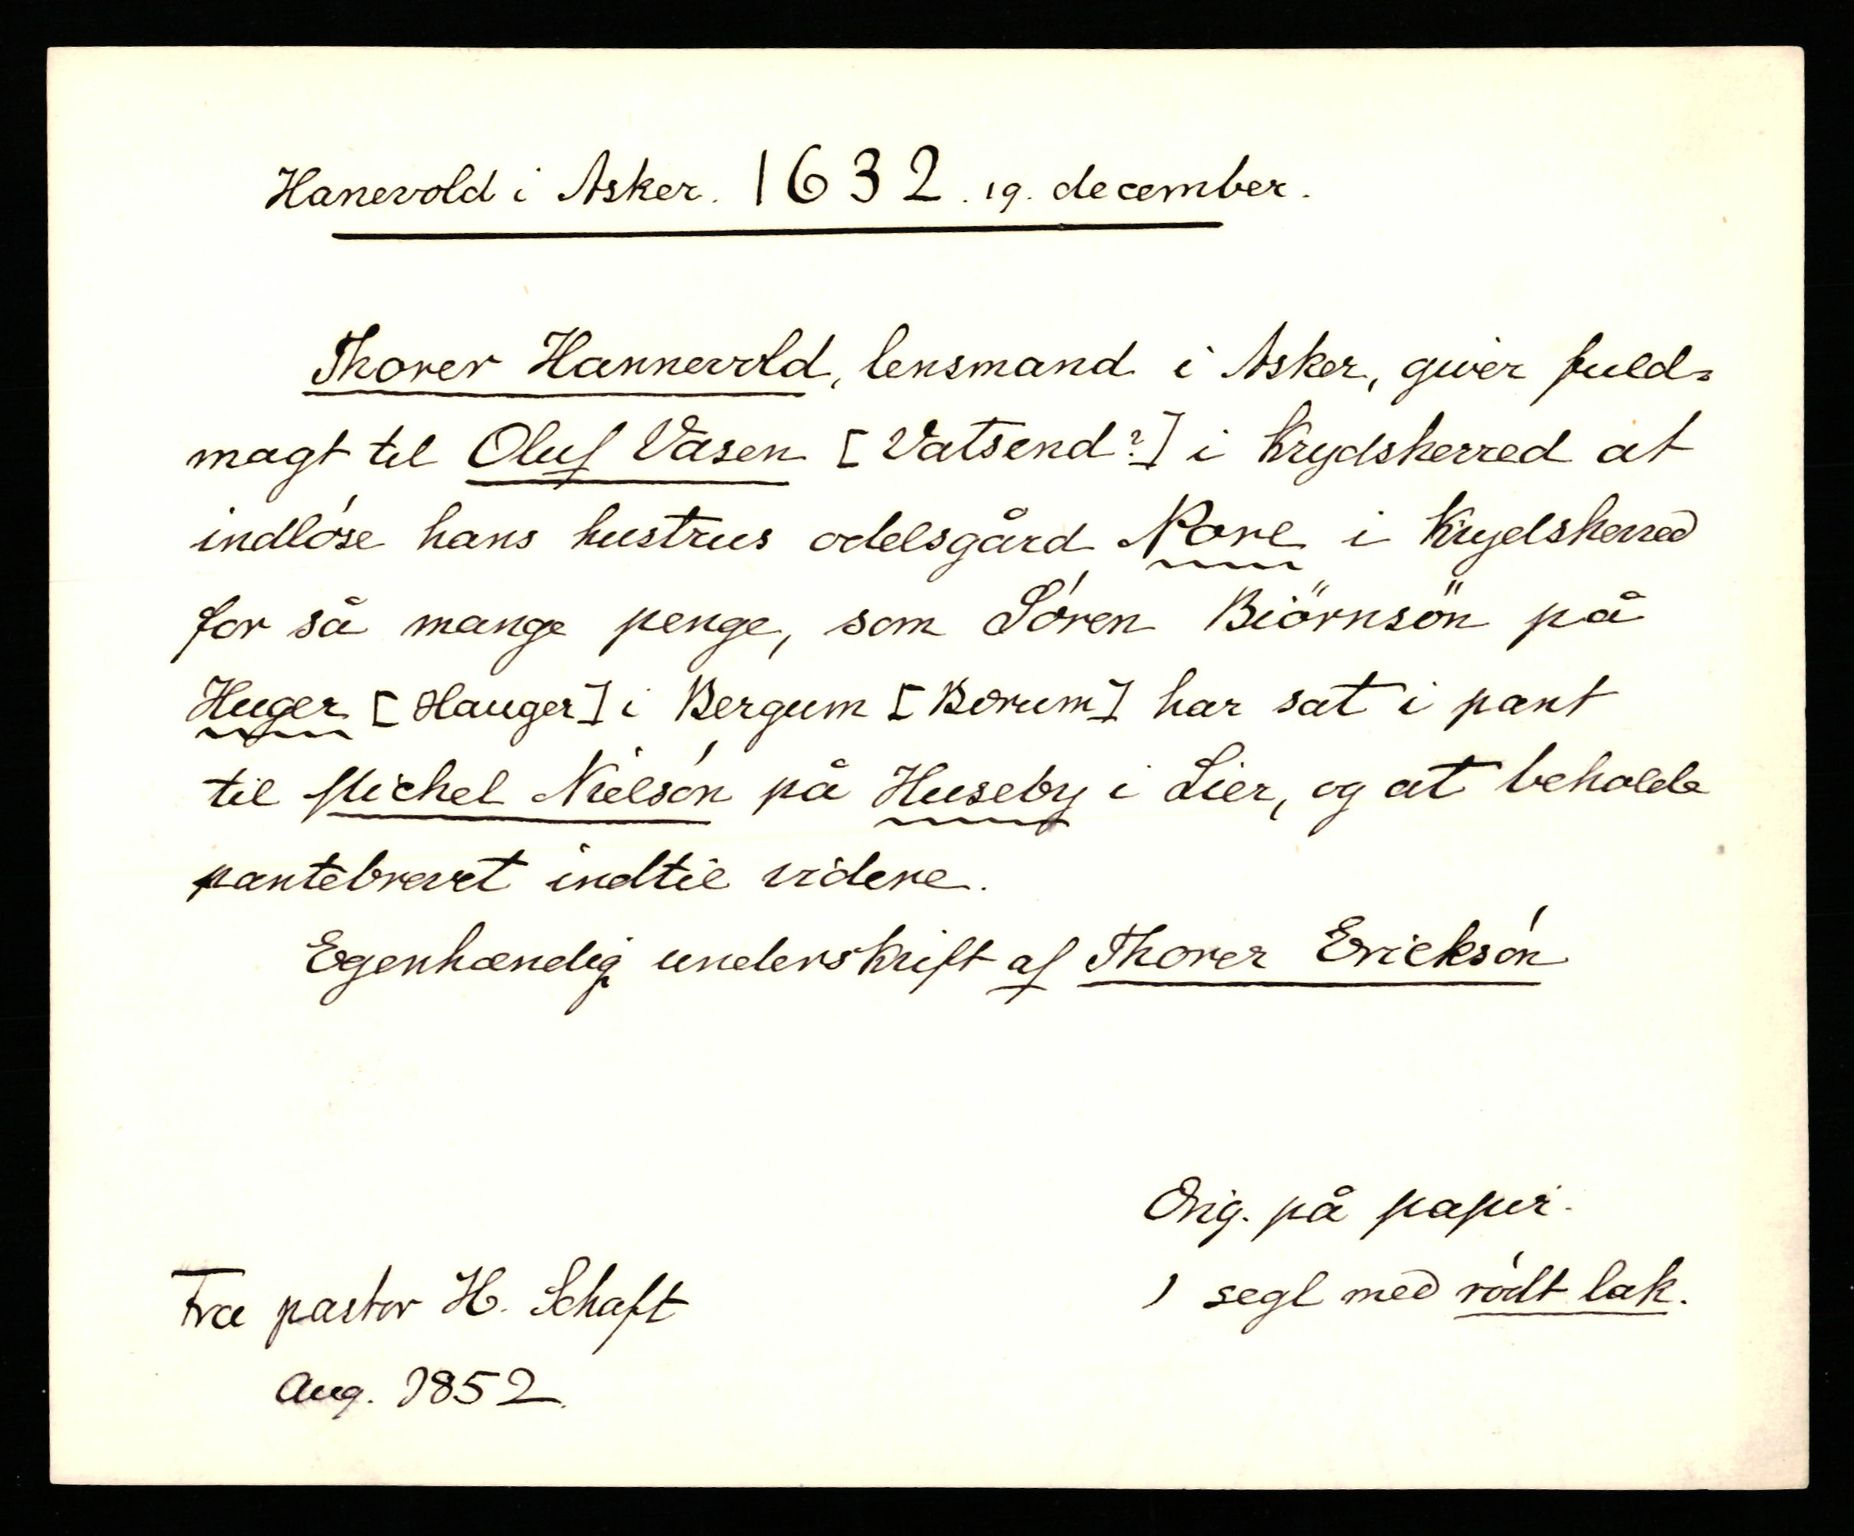 Hanevold i Asker. 1632. 19. december.
Thorer Hannevold, lensmand i Asker, giver fuld-
magt til Oluf Vasen [Vatsend?] i Krydsherred at
indlóse hans hustrus odelsgård Nore i Krydsherred
for så mange penge, som Sóren Biörnsön på
Huger [Hauger] i Bergum [Borum] har sat i pant
til Michel Nielsón på Huseby i Lier, og at beholde
pantebrevet indtil videre.
Egenhændig underskrift af Thorer Ericksón
Orig. på papir.
1 segl med ródt lak.
Fra pastor H. Schaft
Aug. 1852.